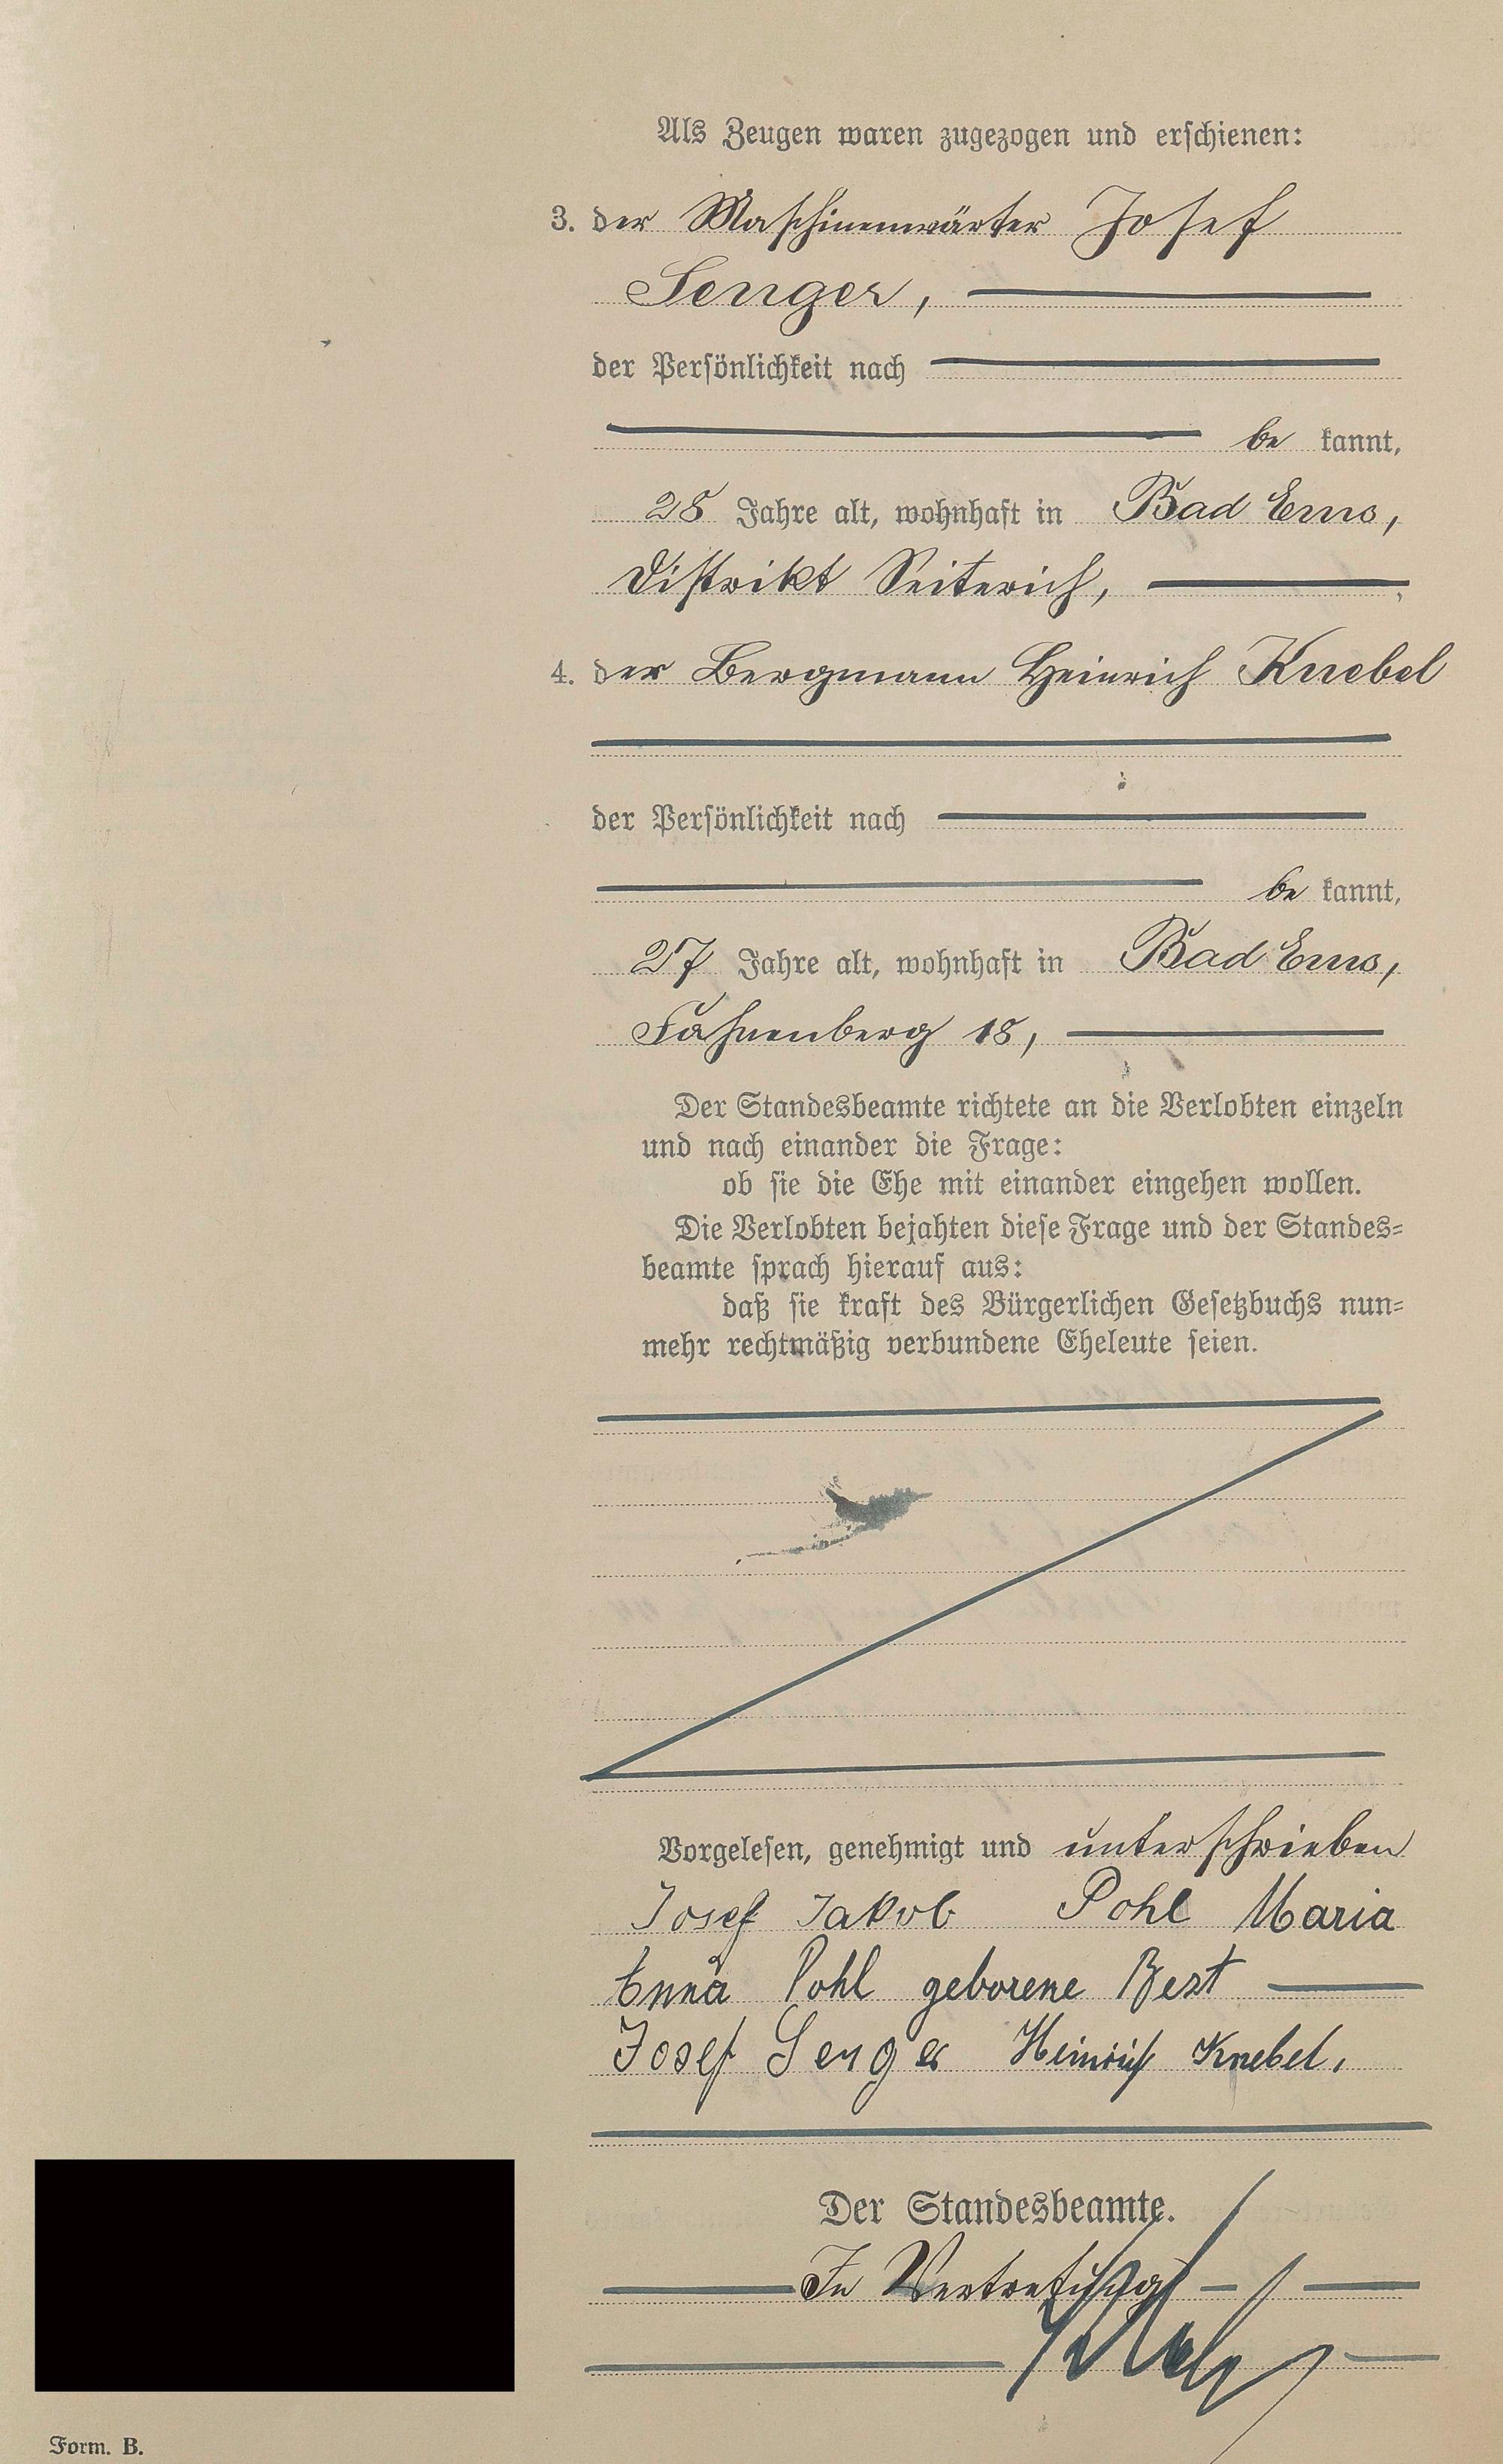 Als Zeugen waren zugezogen und erschienen:
3. der Maschinenwärter Josef
Senger,
der Persönlichkeit nach
be kannt,
28 Jahre alt, wohnhaft in Bad Ems,
Distrikt Seiterich,
4. der Bergmann Heinrich Knebel
der Persönlichkeit nach
be kannt,
27 Jahre alt, wohnhaft in Bad Ems,
Fahnenberg 18,
Der Standesbeamte richtete an die Verlobten einzeln
und nach einander die Frage:
ob sie die Ehe mit einander eingehen wollen.
Die Verlobten bejahten diese Frage und der Standes-
beamte sprach hierauf aus:
daß sie kraft des Bürgerlichen Gesetzbuchs nun-
mehr rechtmäßig verbundene Eheleute seien.
Vorgelesen, genehmigt und unterschrieben
Josef Jakob Pohl Maria
Anna Pohl geborene Best
Josef Senger Heinrich Knebel.
Der Standesbeamte.
In Vertretung
Form. B.